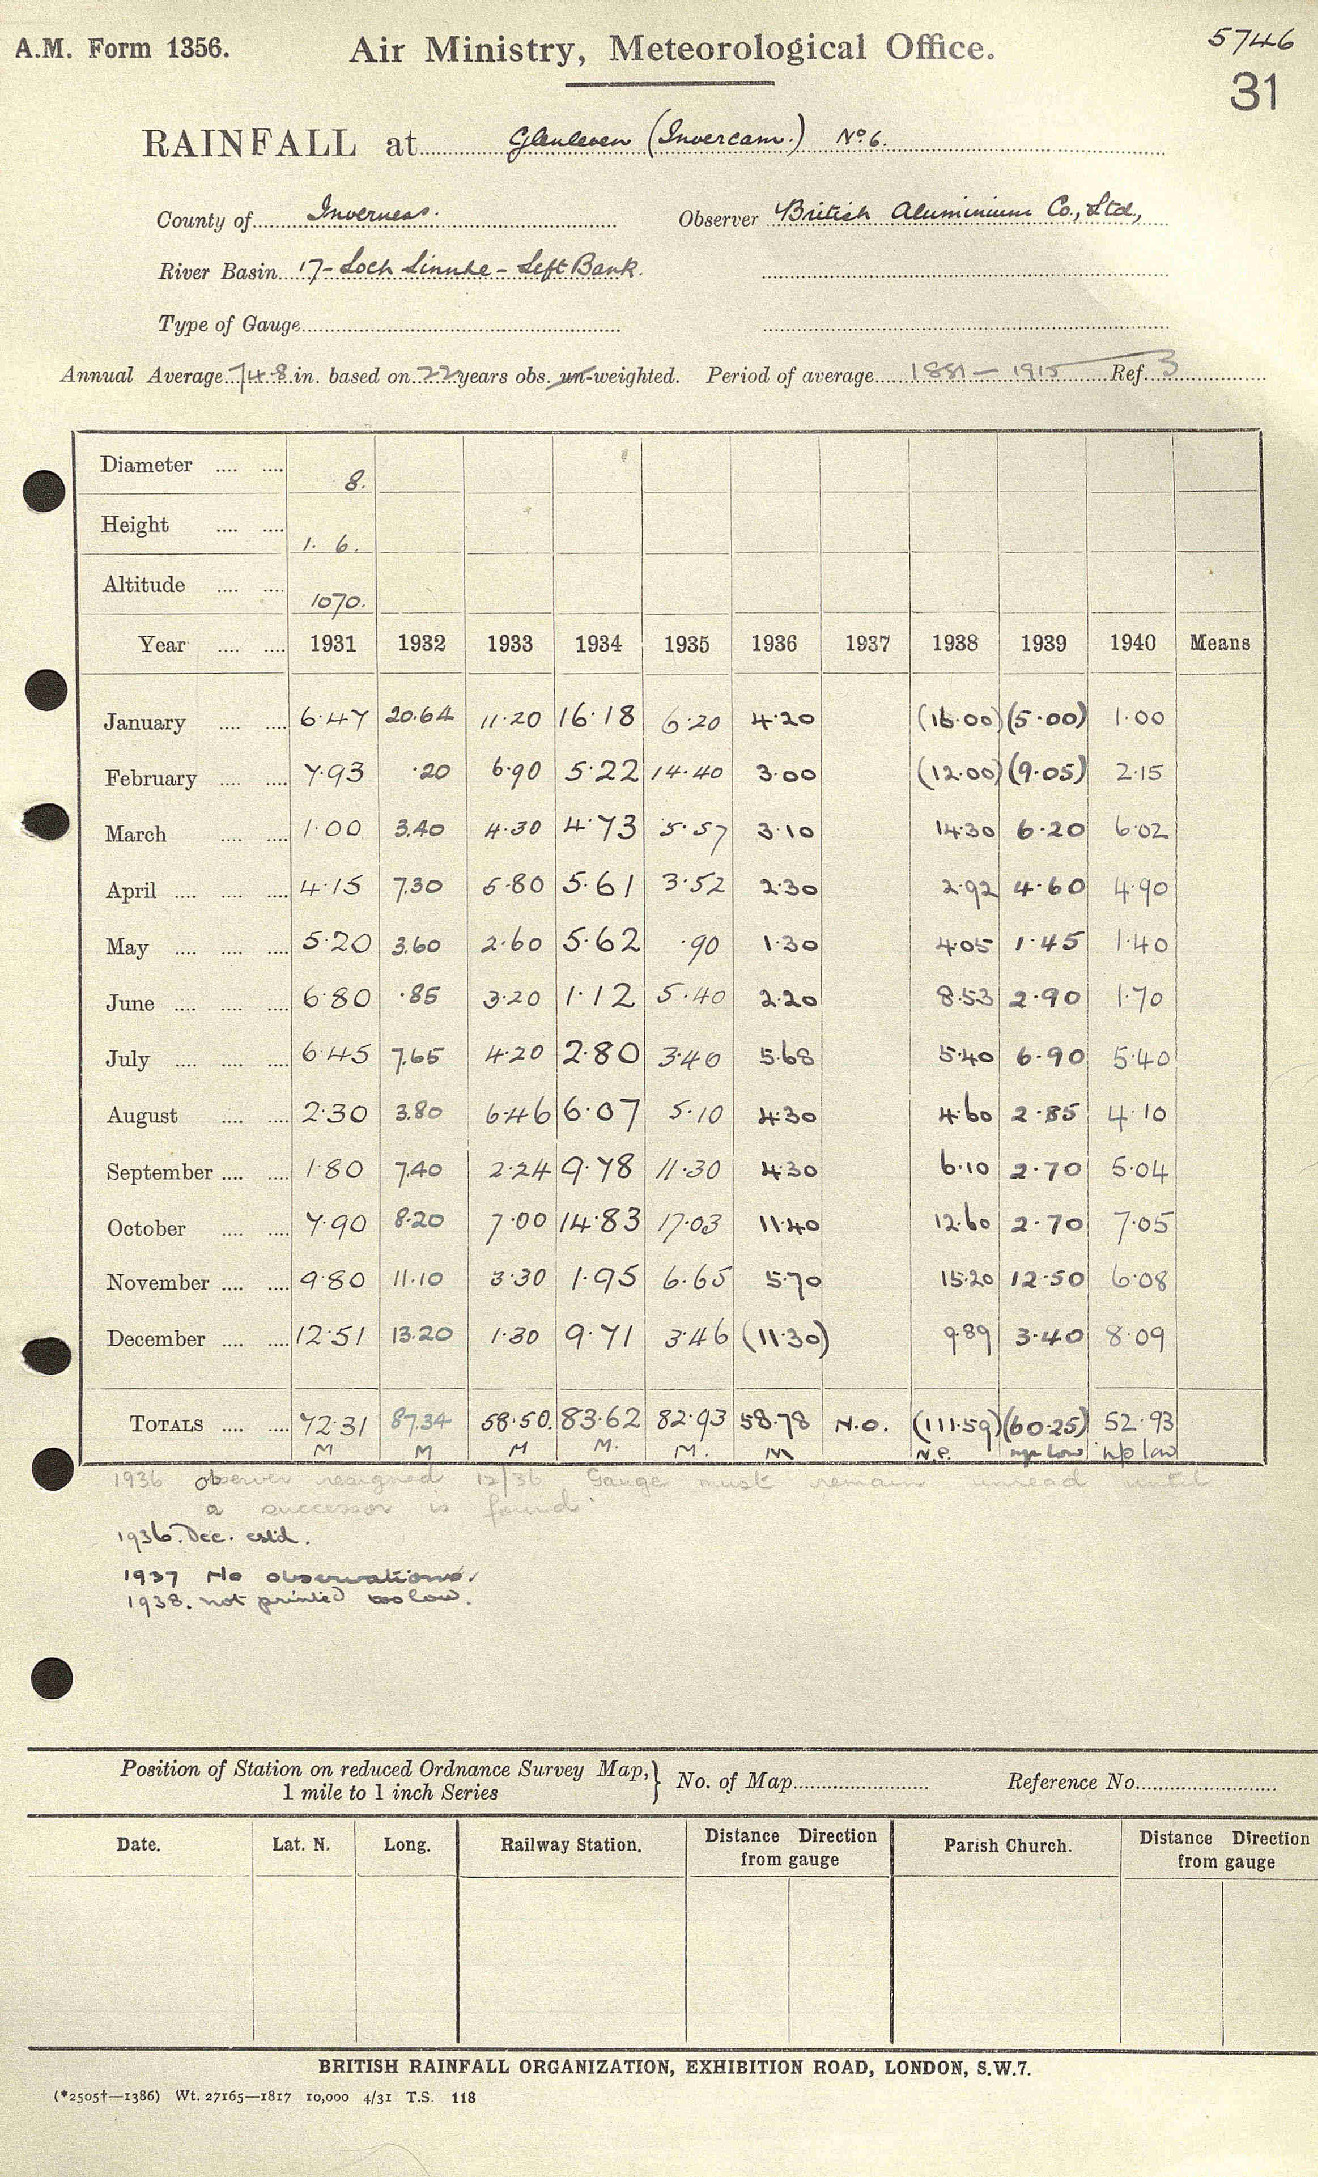 A.M. Form 1356. Air Ministry, Meteorological Office. 5746
31
RAINFALL at Glenleven (Invercam.) No. 6.
County of Inverness. Observer British Aluminium Co., Ltd.,
River Basin 17 - Loch Linnhe - Left Bank.
Type of Gauge
Annual Average 74.8 in. based on 22 years obs. un-weighted. Period of average 1881 - 1915 Ref. 3
Diameter 8.
Height 1. 6.
Altitude 1070.
Year 1931 1932 1933 1934 1935 1936 1937 1938 1939 1940 Means
January 6.47 20.64 11.20 16.18 6.20 4.20 (16.00) (5.00) 1.00
February 7.93 .20 6.90 5.22 14.40 3.00 (12.00) (9.05) 2.15
March 1.00 3.40 4.30 4.73 5.57 3.10 14.30 6.20 6.02
April 4.15 7.30 5.80 5.61 3.52 2.30 2.92 4.60 4.90
May 5.20 3.60 2.60 5.62 .90 1.30 4.05 1.45 1.40
June 6.80 .85 3.20 1.12 5.40 2.20 8.53 2.90 1.70
July 6.45 7.65 4.20 2.80 3.40 5.68 5.40 6.90 5.40
August 2.30 3.80 6.46 6.07 5.10 4.30 4.60 2.85 4.10
September 1.80 7.40 2.24 9.78 11.30 4.30 6.10 2.70 5.04
October 7.90 8.20 7.00 14.83 17.03 11.40 12.60 2.70 7.05
November 9.80 11.10 3.30 1.95 6.65 5.70 15.20 12.50 6.08
December 12.51 13.20 1.30 9.71 3.46 (11.30) 9.89 3.40 8.09
TOTALS 72.31 87.34 58.50. 83.62 82.93 58.78 N.O. (111.59) (60.25) 52.93
M M M M. M. M N.P. n/p low n/p low
1936 observer resigned 12/36 Gauge must remain unread until
a successor is found.
1936. Dec. estd.
1937 No observations.
1938. not printed too low.
Position of Station on reduced Ordnance Survey Map, } No. of Map Reference No.
1 mile to 1 inch Series
Date. Lat. N. Long. Railway Station. Distance Direction from gauge Parish Church. Distance Direction from gauge
BRITISH RAINFALL ORGANIZATION, EXHIBITION ROAD, LONDON, S.W.7.
(*2505†—1386) Wt. 27165—1817 10,000 4/31 T.S. 118